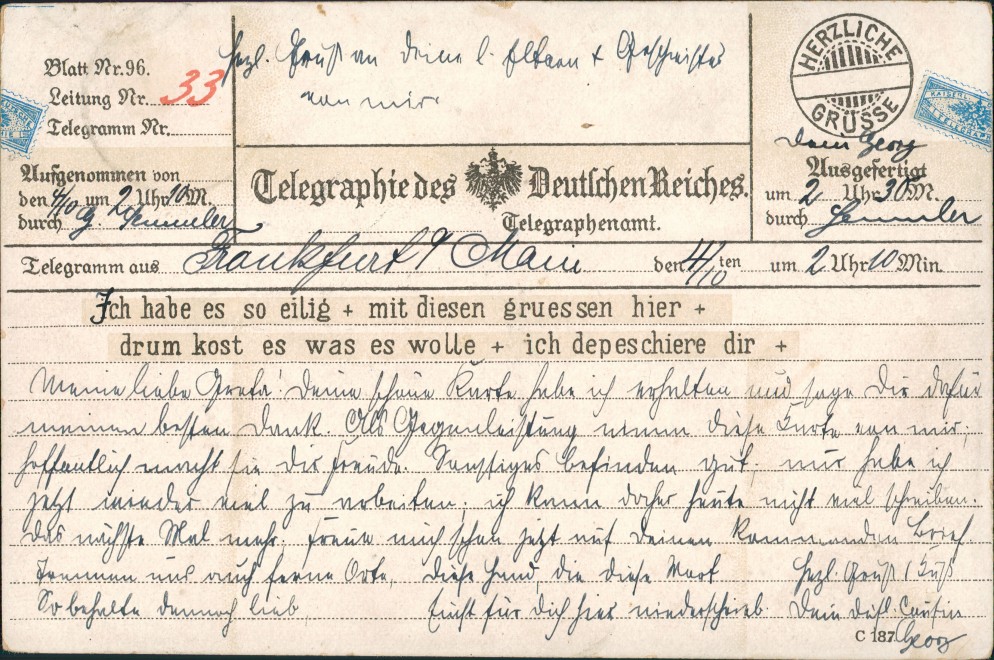 Herzl. Gruß an deine l. Eltern + Geschwister
von mir.
Blatt Nr. 96.
Leitung Nr. 33
Telegramm Nr.
HERZLICHE
GRÜSSE
Dein Georg
Aufgenommen von
den 4/10 um 2 Uhr 10 M.
durch G. Semmler
Telegraphie des Deutschen Reiches.
Telegraphenamt.
Ausgefertigt
um 2 Uhr 30 M.
durch Semmler
Telegramm aus Frankfurt a/ Main den 4/10 ten um 2 Uhr 10 Min.
Ich habe es so eilig + mit diesen gruessen hier +
drum kost es was es wolle + ich depeschiere dir +
Meine liebe Greta! Deine schöne Karte habe ich erhalten und sage Dir dafür
meinen besten Dank. Als Gegenleistung nimm diese Karte von mir;
hoffentlich macht sie Dir Freude. Sonstiges Befinden gut, nur habe ich
jetzt wieder viel zu arbeiten; ich kann daher heute nicht viel schreiben.
Das nächste Mal mehr. Freue mich schon jetzt auf Deinen kommenden Brief.
Trennen uns auch ferne Orte, diese Hand, die diese Worte Herzl. Gruß / Kuß
So behalte dennoch lieb Einst für Dich hier niederschrieb. Dein Cousin
C 187. Georg